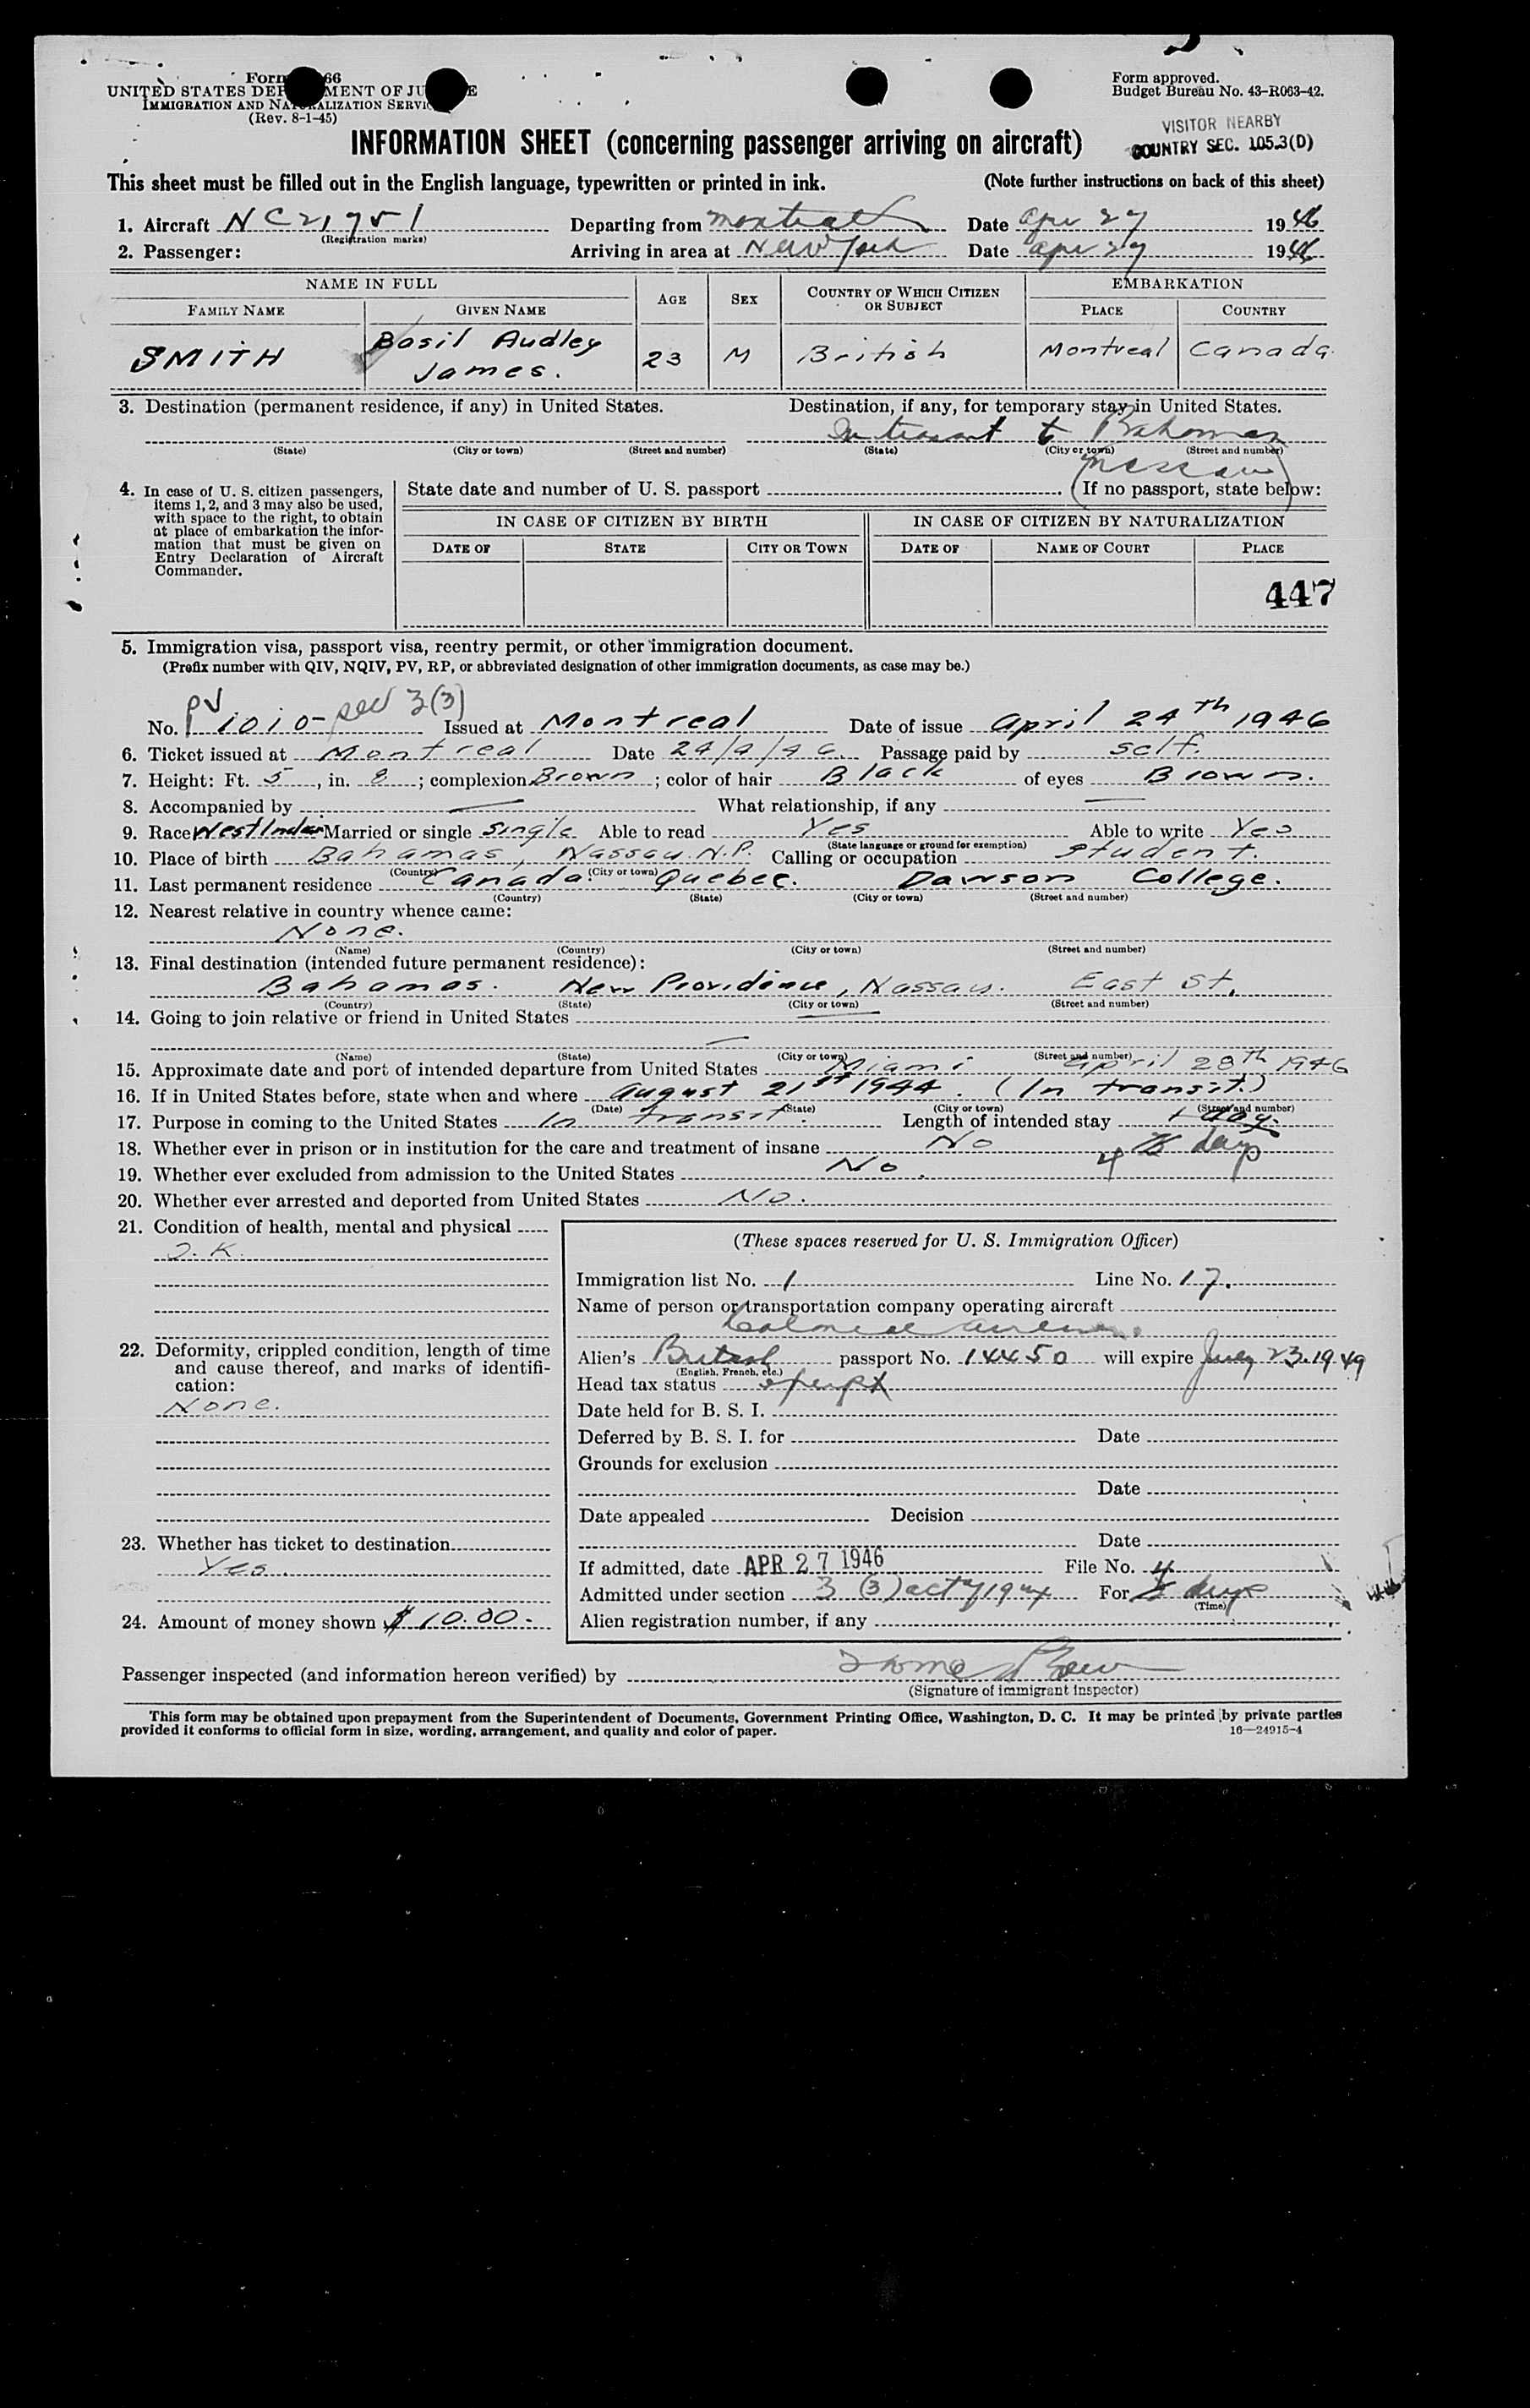 Form 66
UNITED STATES DEPARTMENT OF JUSTICE
IMMIGRATION AND NATURALIZATION SERVICE
(Rev. 8-1-45)
Form approved.
Budget Bureau No. 43-R063-42.
VISITOR NEARBY
COUNTRY SEC. 105.3(D)
INFORMATION SHEET (concerning passenger arriving on aircraft)
This sheet must be filled out in the English language, typewritten or printed in ink. (Note further instructions on back of this sheet)
1. Aircraft NC21751 Departing from Montreal Date Apr 27 1946
(Registration marks)
2. Passenger: Arriving in area at New York Date Apr 27 1946
NAME IN FULL AGE SEX COUNTRY OF WHICH CITIZEN OR SUBJECT EMBARKATION
FAMILY NAME GIVEN NAME PLACE COUNTRY
SMITH Basil Audley James. 23 M British Montreal Canada
3. Destination (permanent residence, if any) in United States. Destination, if any, for temporary stay in United States.
In transit to Bahamas
(State) (City or town) (Street and number) (State) (City or town) (Street and number)
(Nassau)
4. In case of U. S. citizen passengers, items 1, 2, and 3 may also be used, with space to the right, to obtain at place of embarkation the information that must be given on Entry Declaration of Aircraft Commander.
State date and number of U. S. passport . (If no passport, state below:
IN CASE OF CITIZEN BY BIRTH IN CASE OF CITIZEN BY NATURALIZATION
DATE OF STATE CITY OR TOWN DATE OF NAME OF COURT PLACE
447
5. Immigration visa, passport visa, reentry permit, or other immigration document.
(Prefix number with QIV, NQIV, PV, RP, or abbreviated designation of other immigration documents, as case may be.)
No. PV 1010- sec 3(3) Issued at Montreal Date of issue April 24th 1946
6. Ticket issued at Montreal Date 24/4/46 Passage paid by self.
7. Height: Ft. 5, in. 8; complexion Brown; color of hair Black of eyes Brown.
8. Accompanied by — What relationship, if any —
9. Race West Indian Married or single single Able to read Yes Able to write Yes
(State language or ground for exemption)
10. Place of birth Bahamas, Nassau. N.P. Calling or occupation Student.
(Country) (City or town)
11. Last permanent residence Canada. Quebec. Dawson College.
(Country) (State) (City or town) (Street and number)
12. Nearest relative in country whence came:
None.
(Name) (Country) (City or town) (Street and number)
13. Final destination (intended future permanent residence):
Bahamas. New Providence, Nassau. East St.
(Country) (State) (City or town) (Street and number)
14. Going to join relative or friend in United States —
—
(Name) (State) (City or town) (Street and number)
15. Approximate date and port of intended departure from United States Miami April 28th 1946
16. If in United States before, state when and where August 21st 1944. (In transit.)
(Date) (State) (City or town) (Street and number)
17. Purpose in coming to the United States In transit. Length of intended stay 1 day
4 days
18. Whether ever in prison or in institution for the care and treatment of insane No
19. Whether ever excluded from admission to the United States No.
20. Whether ever arrested and deported from United States No.
21. Condition of health, mental and physical
O.K.
22. Deformity, crippled condition, length of time and cause thereof, and marks of identification:
None.
23. Whether has ticket to destination
Yes.
24. Amount of money shown $10.00-
(These spaces reserved for U. S. Immigration Officer)
Immigration list No. 1 Line No. 17.
Name of person or transportation company operating aircraft
Colonial Airlines
Alien's British passport No. 14450 will expire July 23.1949
(English, French, etc.)
Head tax status exempt
Date held for B. S. I.
Deferred by B. S. I. for Date
Grounds for exclusion
Date
Date appealed Decision
Date
If admitted, date APR 27 1946 File No.
Admitted under section 3 (3) act of 1924 For 4 days
(Time)
Alien registration number, if any
Passenger inspected (and information hereon verified) by
(Signature of immigrant inspector)
This form may be obtained upon prepayment from the Superintendent of Documents, Government Printing Office, Washington, D. C. It may be printed by private parties
provided it conforms to official form in size, wording, arrangement, and quality and color of paper. 16—24915-4